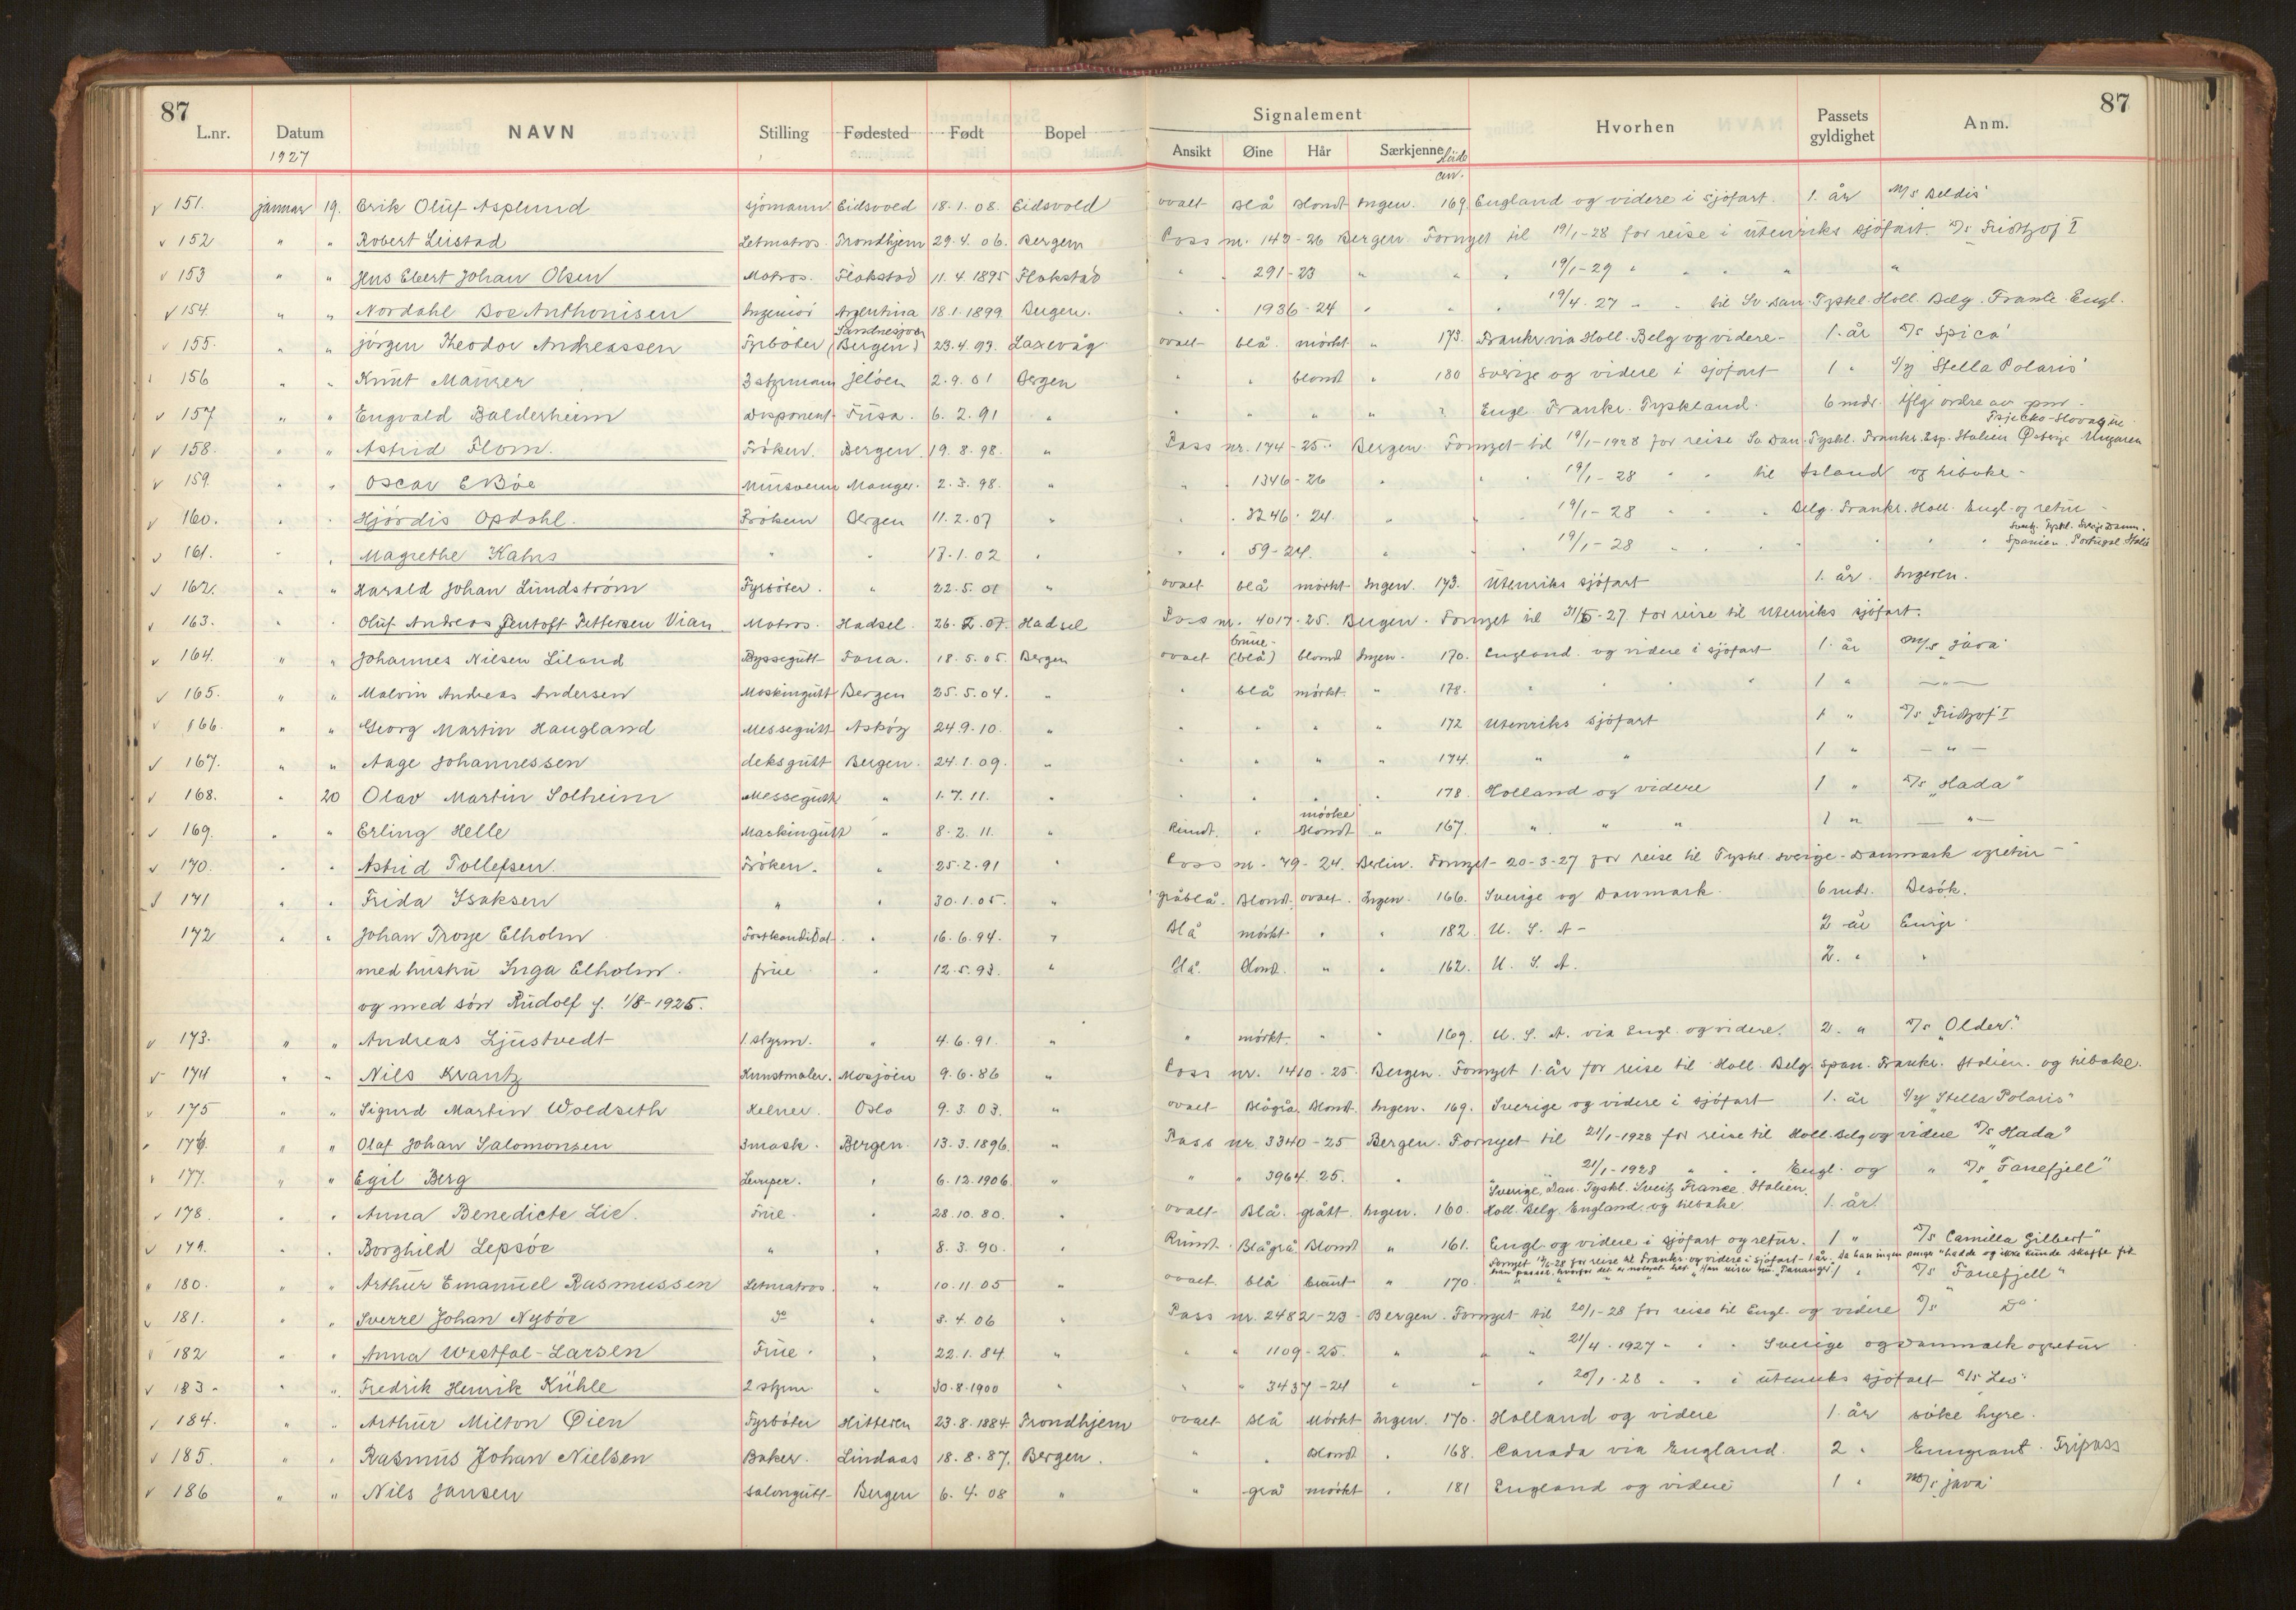 87
87
L.nr. Datum NAVN Stilling Fødested Født Bopel Signalement Hvorhen Passets gyldighet Anm.
1927 Ansikt Øine Hår Særkjenne Höide cm.
151. januar 19. Erik Oluf Asplund sjömann Eidsvold 18.1.08. Eidsvold ovalt Blå Blondt Ingen. 169 England og videre i sjöfart. 1. år M/s Beldis'
152 " " Robert Leistad Letmatros. Trondhjem 29.4.06. Bergen Pass nr. 143-26 Bergen. Fornyet til 19/1-28 for reise i utenriks sjöfart. D/s Fridtjof I
153 " " Jens Ebert Johan Olsen Matros. Flakstad 11.4.1895 Flakstad " " 291-23 " " " 19/1-29 " " " "
154. " " Nordahl Boe Anthonisen Ingeniör Argentina 18.1.1899 Bergen. " " 1936-24 " " " 19/4-27 " " til Sv. Dan. Tyskl. Holl. Belg. Frankr. Engl.
155. " " Jörgen Theodor Andreassen Fyrböter Sandnesjöen (Bergen) 23.4.93. Laxevåg ovalt blå mörkt " 173. Frankr via Holl. Belg og videre - 1. år D/s Spica'
156 " " Knut Maurer 3 styrmann Jelöen 2.9.01 Bergen " " blondt " 180 Sverige og videre i sjöfart 1 " S/y Stella Polaris'
157 " " Engvald Balderheim Disponent Fusa. 6.2.91 " " " " " " Engl. Frankr. Tyskland. 6 mdr. Iflge ordre av pm.
158. " " Astrid Flom. Fröken. Bergen. 19.8.98. " Pass nr. 174-25. Bergen. Fornyet til 19/1-1928 for reise Sv. Dan. Tyskl. Frankr. Esp. Italien Østerige Tsjecko-Slovakiet Ungaren
159. " " Oscar E Böe Mursvenn Manger. 2.3.98. " " " 1346-26 " " " 19/1-28 " " til Island og tilbake -
160. " " Hjördis Opdahl. Fröken Bergen 11.2.07 " " " 3246-24. " " " 19/1-28 " " " Belg. Frankr. Holl. Engl. og retur -
161. " " Magrethe Kahrs " " 17.1.02 " " " 59-24. " " " 19/1-28 " " " " " " Tyskl. Sverige Danm. Spanien. Portugal Italie
162. " " Harald Johan Lundström Fyrböter. " 22.5.01 " ovalt blå mörkt Ingen. 173. Utenriks sjöfart 1. år. Ingeren.
163. " " Oluf Andreas Jentoft Pettersen Vian Matros. Hadsel. 26.2.07. Hadsel Pass nr. 4017-25. Bergen. Fornyet til 31/5-27 for reise til Utenriks sjöfart.
164. " " Johannes Nilsen Liland Byssegutt Fana. 18.5.05. Bergen ovalt brune - (blå) blondt Ingen. 170. England og videre i sjöfart 1. år M/s "Java"
165. " " Malvin Andreas Andersen Maskingutt Bergen 25.5.04. " " blå mörkt " 178. " " " " 1 " — " —
166. " " Georg Martin Haugland Messegutt Asköy 24.9.10. " " " " " 172 Utenriks sjöfart 1 " D/s "Fridtjof I
167. " " Aage Johannessen deksgutt Bergen. 24.1.09. " " " " " 174. " " 1 " — " —
168. " 20 Olav Martin Solheim Messegutt " 1.7.11. " " " " " 178. Holland og videre 1 " D/s "Hada"
169. " " Erling Helle Maskingutt " 8.2.11. " Rundt. " mörke Blondt " 167. " " " 1 " — " —
170. " " Astrid Tollefsen. Fröken. " 25.2.91 " Pass nr. 79-24. Berlin. Fornyet 20-3-27 for reise til Tyskl. Sverige - Danmark og retur -
171 " " Frida Isaksen " " 30.1.05. " gråblå. Blond. ovalt. Ingen. 166. Sverige og Danmark. 6 mdr. Besök.
172 " " Johan Troye Elholm Postkandidat. " 16.6.94. " Blå mörkt. " " 182. U. S. A - 2 år Emigr.
med hustru Inga Elholm. frue " 12.5.93. " Blå. blond. " " 162. U. S. A. 2. " "
og med sön Rudolf f. 1/8-1925.
173. " " Andreas Ljustvedt 1. styrm. " 4.6.91. " " mörkt. " " 169. U. S. A. via Engl. og videre. 2. " D/s "Older".
174 " " Nils Krantz Kunstmaler. Mosjöen 9.6.86 " Pass nr. 1410-25. Bergen. Fornyet 1. år for reise til Holl. Belg. Span. Frankr. Italien. og tilbake.
175 " " Sigurd Martin Woldseth Kelner. Oslo 9.3.03. " ovalt Blågrå Blond. Ingen. 169. Sverige og videre i sjöfart 1. år S/y "Stella Polaris"
176. " " Olaf Johan Salomonsen 3 mask. Bergen. 13.3.1896. " Pass nr. 3340-25 Bergen. Fornyet til 21/1-1928 for reise til Holl. Belg og videre D/s "Hada"
177. " " Egil Berg Lemper. " 6.12.1906. " " " 3964.25. " 21/1-1928 " " " Engl. og " D/s "Fanefjell"
178. " " Anna Benedicte Lie. Frue. " 28.10.80. " ovalt Blå. grått. Ingen. 160. Sverige, Dan. Tyskl. Sveitz France. Italien. Holl. Belg. England og tilbake 1. år.
179. " " Borghild Lepsöe " " 8.3.90. " Rundt. Blågrå Blondt " 161. Engl. og videre i sjöfart og retur. 1 " D/s "Camilla Gilbert"
180. " " Arthur Emanuel Rasmussen Letmatros. " 10.11.05 " ovalt. blå brunt " 170. " " " " 1 " D/s "Fanefjell"
Fornyet 15/6-28 for reise til Frankr. og videre i sjöfart - 1 år. Da han ingen penge hadde og ikke kunde skaffe frit
181. " " Sverre Johan Nyböe do " 3.4.06 " Pass nr. 2482-23 - Bergen. Fornyet til 20/1-28 for reise til Engl. og videre D/s Do
182 " " Anna Westfal-Larsen Frue. " 22.1.84. " " " 1109-25. " " " 21/4-1927 " " " Sverige og Danmark og retur
183. " " Fredrik Henrik Kühle 2 styrm. " 30.8.1900 " " " 3437-24 " " " 20/1-28 " " i utenriks sjöfart D/s "Leo"
184. " " Arthur Milton Øien Fyrböter Hitteren 23.8.1884. Trondhjem ovalt Blå Mörkt Ingen. 170. Holland og videre 1. år söke hyre.
185. " " Rasmus Johan Nielsen Baker. Lindaas 18.8.87. Bergen. " " Blondt " 168. Canada via England. 2 " Emigrant. Fripass
186 " " Nils Jansen Salongutt Bergen 6.4.08 " " grå mörkt " 181 England og videre 1 " M/s "Java"